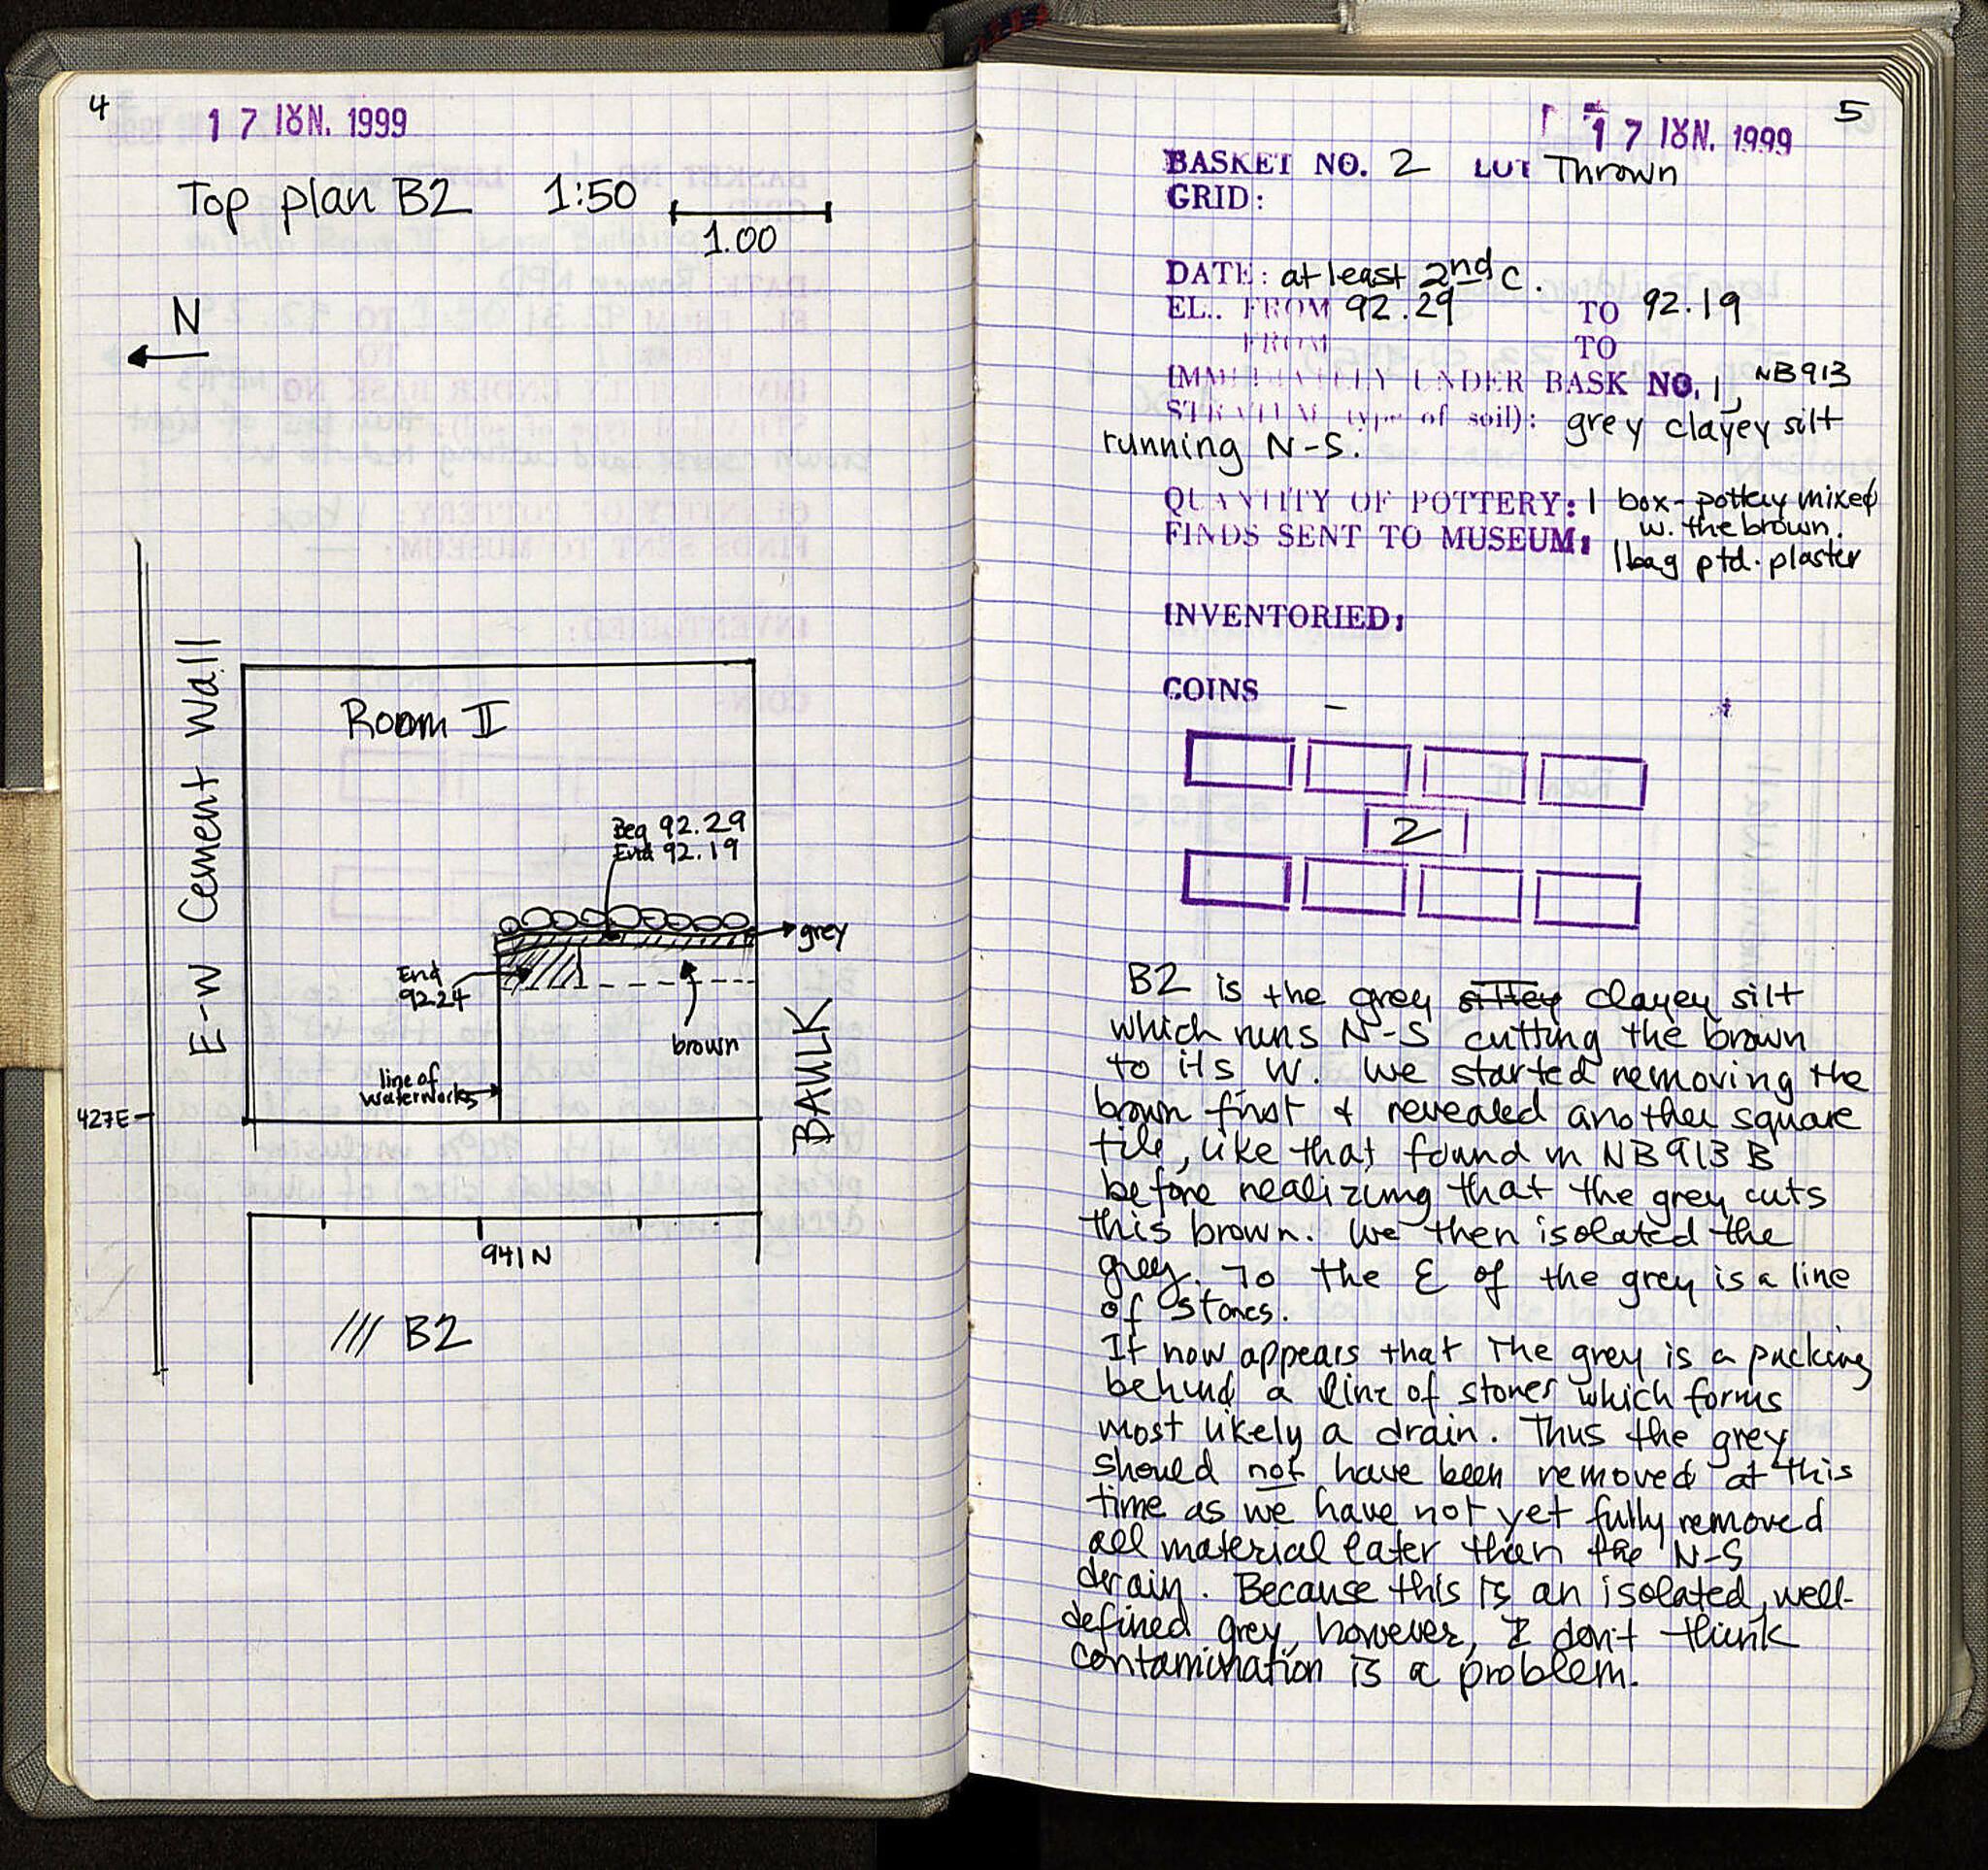 4
17 IȢN. 1999
Top plan B2 1:50
1.00
N
E-W Cement Wall
Room II
Beg 92.29
End 92.19
grey
End
92.24
brown
line of
waterworks
BAULK
427E
941N
/// B2
5
17 IȢN. 1999
BASKET NO. 2 LOT Thrown
GRID:
DATE: at least 2nd c.
EL. FROM 92.29 TO 92.19
FROM TO
IMMEDIATELY UNDER BASK NO. 1, NB913
STRATUM (type of soil): grey clayey silt
running N-S.
QUANTITY OF POTTERY: 1 box - pottery mixed
w. the brown.
FINDS SENT TO MUSEUM: 1 bag ptd. plaster
INVENTORIED:
COINS –
2
B2 is the grey siltey clayey silt
which runs N-S cutting the brown
to its W. We started removing the
brown first & revealed another square
tile, like that found in NB913 B
before realizing that the grey cuts
this brown. We then isolated the
grey. To the E of the grey is a line
of stones.
It now appears that the grey is a packing
behind a line of stones which forms
most likely a drain. Thus the grey
should not have been removed at this
time as we have not yet fully removed
all material later than the N-S
drain. Because this is an isolated, well-
defined grey, however, I don't think
contamination is a problem.